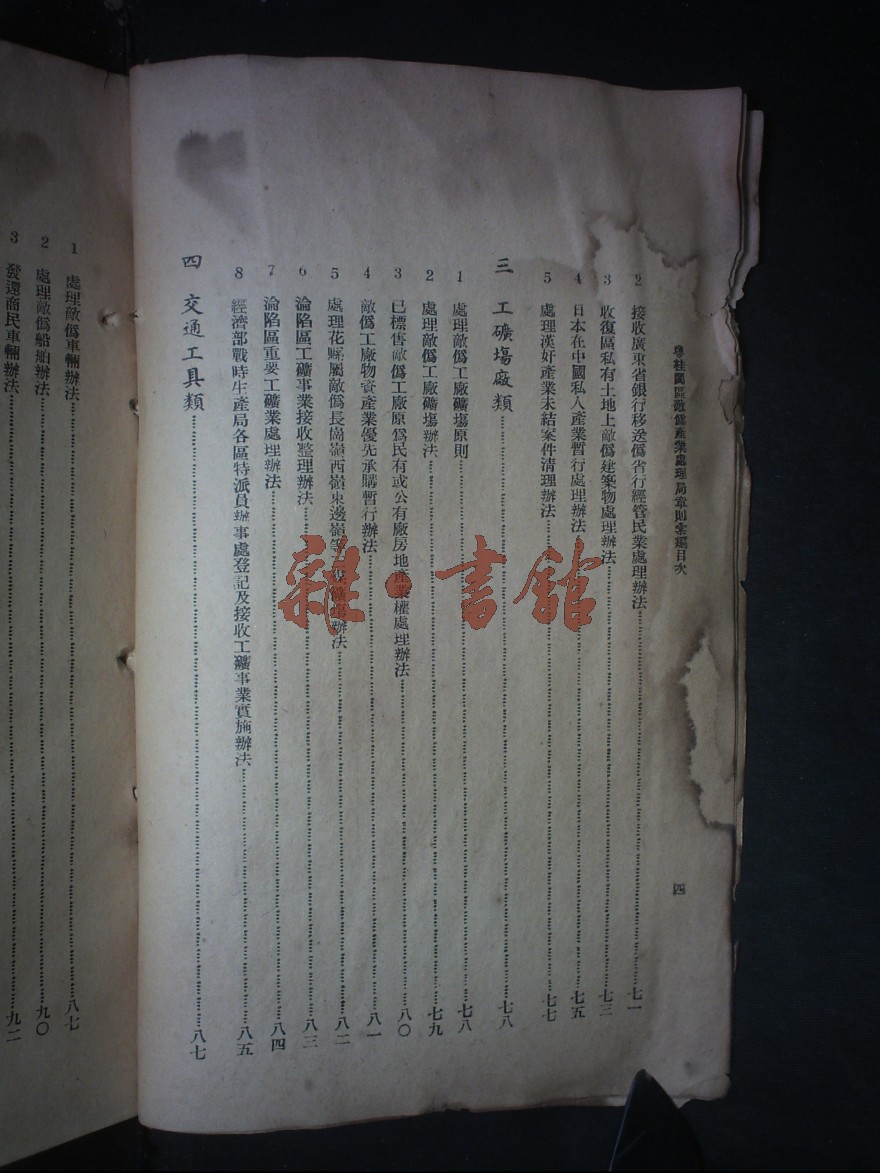 粵桂閩區敵僞產業處理局章則彙編目次
四
2 接收廣東省銀行移送僞省行經管民業處理辦法……七一
3 收復區私有土地上敵僞建築物處理辦法……七三
4 日本在中國私人產業暫行處理辦法……七五
5 處理漢奸產業未結案件清理辦法……七七
三 工礦場廠類……七八
1 處理敵僞工廠礦場原則……七八
2 處理敵僞工廠礦場辦法……七九
3 已標售敵僞工廠原爲民有或公有廠房地產業權處理辦法……八〇
4 敵僞工廠物資產業優先承購暫行辦法……八一
5 處理花縣屬敵僞長崗嶺西嶺東邊嶺等……辦法……八二
6 淪陷區工礦事業接收整理辦法……八三
7 淪陷區重要工礦業處理辦法……八四
8 經濟部戰時生產局各區特派員辦事處登記及接收工礦事業實施辦法……八五
四 交通工具類……八七
1 處理敵僞車輛辦法……八七
2 處理敵僞船舶辦法……九〇
3 發還商民車輛辦法……九二
雜·書館